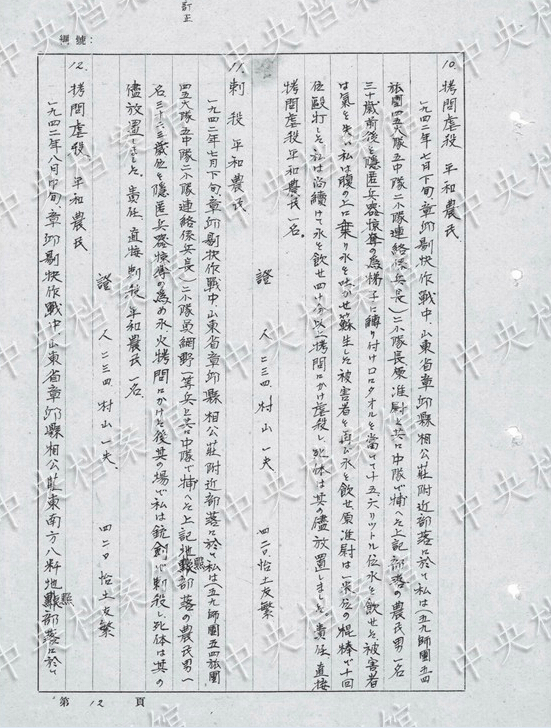 訂正
編號：
10. 拷問虐殺 平和農民
一九四二年七月下旬、章邱剔快作戰中、山東省章邱縣相公莊附近部落に於て私は（五九師團五四
旅團四五大隊五中隊二小隊連絡係兵長）二小隊長原准尉と共に中隊で捕へた上記部落の農民男一名
三十歲前後を隱匿兵器掠奪の為梯子に縛り付け口にタオルを當てて十五、六リットル位水を飲せた被害者
は氣を失い私は腹の上に乗り水を吐かせ蘇生した被害者を再び水を飲せ原准尉は一米位の棍棒で十回
位毆打した私は尚續けて水を飲せ四十分以上拷問にかけ虐殺し、死体は其の儘放置しました。責任 直接
拷問虐殺平和農民一名。
證 人 二三四 村山一夫 四二〇 怡土友繁
11. 刺殺 平和農民
一九四二年七月下旬、章邱剔快作戰中、山東省章邱縣相公莊附近部落に於て私は（五九師團五四旅團
四五大隊五中隊二小隊連絡係兵長）二小隊員網野一等兵と共に中隊で捕へた上記地點部落の農民男一
名三十二三歲位を隱匿兵器掠奪の為め水火拷問にかけた後其の場で私は銃劍で刺殺し、死体は其の
儘放置しました。責任、直接刺殺平和農民一名。
證 人 二三四 村山一夫、 四二〇 怡土友繁
12. 拷問虐殺、平和農民
一九四二年八月中旬、章邱剔快作戰中、山東省章邱縣相公莊東南方八粁地點部落に於て
第 12 頁
中央档案馆